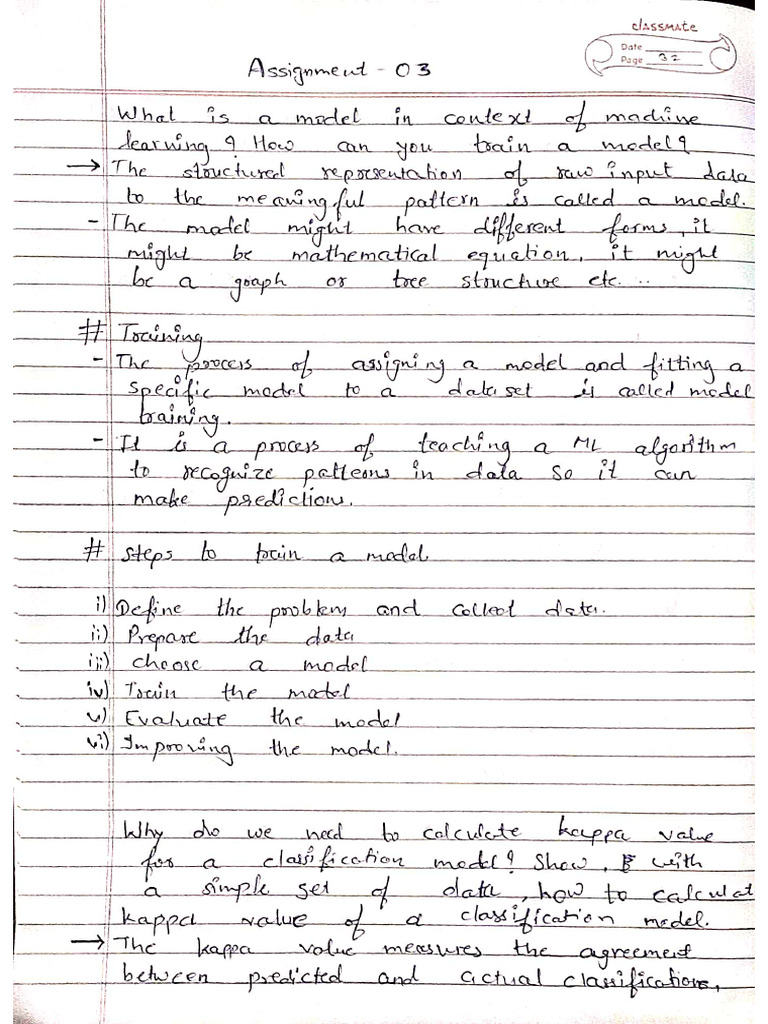 classmate
Date
Page 32
Assignment - 03
What is a model in context of machine
learning? How can you train a model?
→ The structured representation of raw input data
to the meaningful pattern is called a model.
- The model might have different forms, it
might be mathematical equation, it might
be a graph or tree structure etc...
# Training
- The process of assigning a model and fitting a
specific model to a data set is called model
training.
- It is a process of teaching a ML algorithm
to recognize patterns in data so it can
make prediction.
# steps to train a model
i) Define the problem and collect data.
ii) Prepare the data
iii) choose a model
iv) Train the model
v) Evaluate the model
vi) Improving the model.
Why do we need to calculate kappa value
for a classification model? Show, with
a simple set of data, how to calculat
kappa value of a classification model.
→ The kappa value measures the agreement
between predicted and actual classifications,